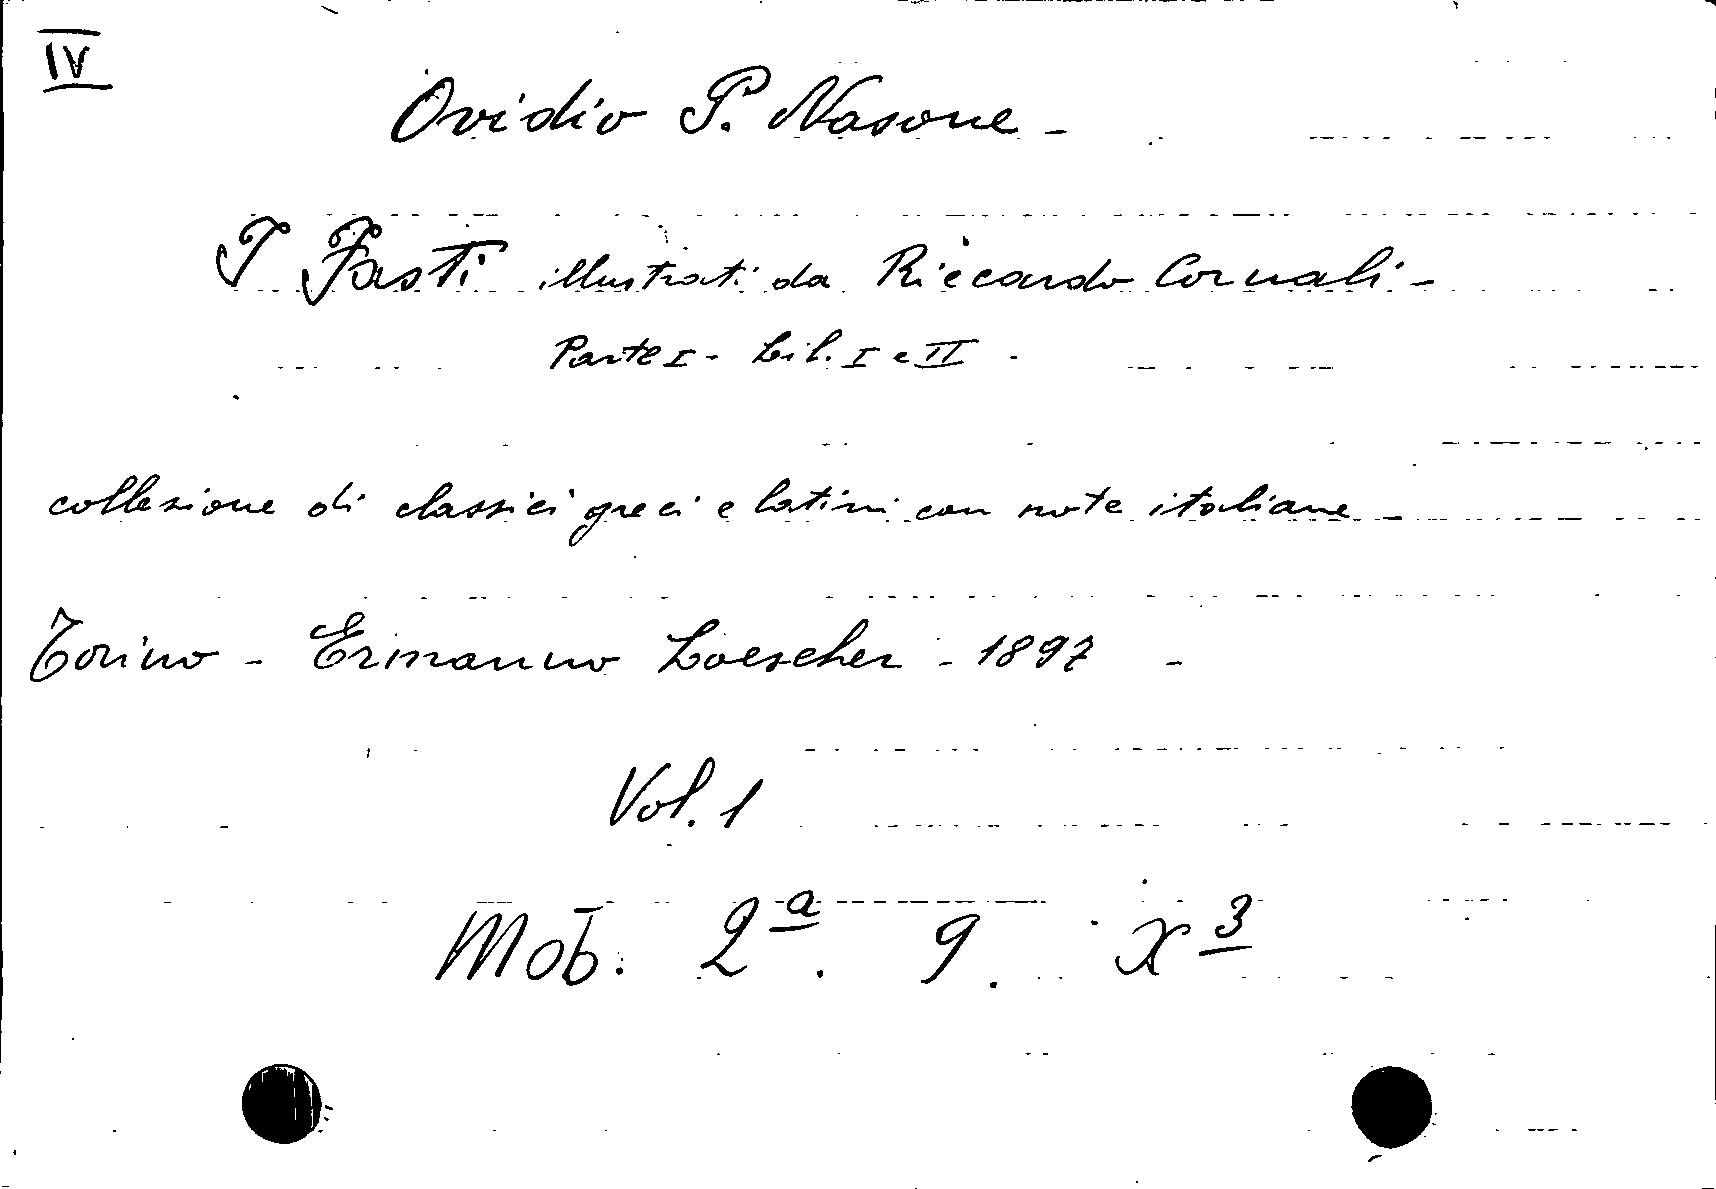 IV
Ovidio P. Nasone -
I Fasti illustrati da Riccardo Cornali -
Parte I - Lib. I e II -
collezione di classici greci e latini con note italiane -
Torino - Ermanno Loescher - 1897 -
Vol. 1
Mob. 2ª. 9. X 3